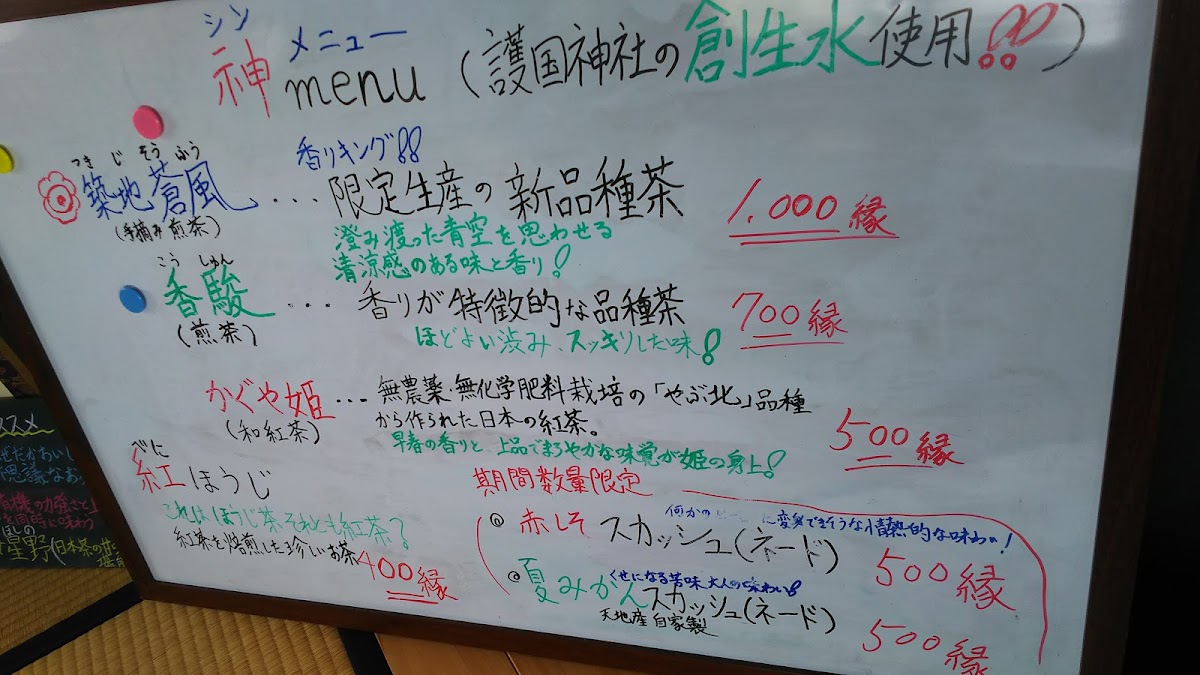 シン
神 メニュー menu (護国神社の創生水使用!!)
つきじそうふう
築地蒼風 ... 香りキング!! 限定生産の新品種茶 1,000縁
(手摘み煎茶)
澄み渡った青空を思わせる
清涼感のある味と香り!
こうしゅん
香駿 ... 香りが特徴的な品種茶 700縁
(煎茶)
ほどよい渋み、スッキリした味!
かぐや姫 ... 無農薬・無化学肥料栽培の「やぶ北」品種
(和紅茶)
から作られた日本の紅茶。
早春の香りと上品でまろやかな味覚が姫の身上! 500縁
べに
紅ほうじ
これはほうじ茶それとも紅茶?
紅茶を焙煎した珍しいお茶 400縁
期間数量限定
何かの に変身できそうな情熱的な味わい!
赤しそスカッシュ(ネード) 500縁
くせになる苦味 大人の味わい!
夏みかんスカッシュ(ネード) 500縁
天地産自家製
ススメ
星野(日本茶の